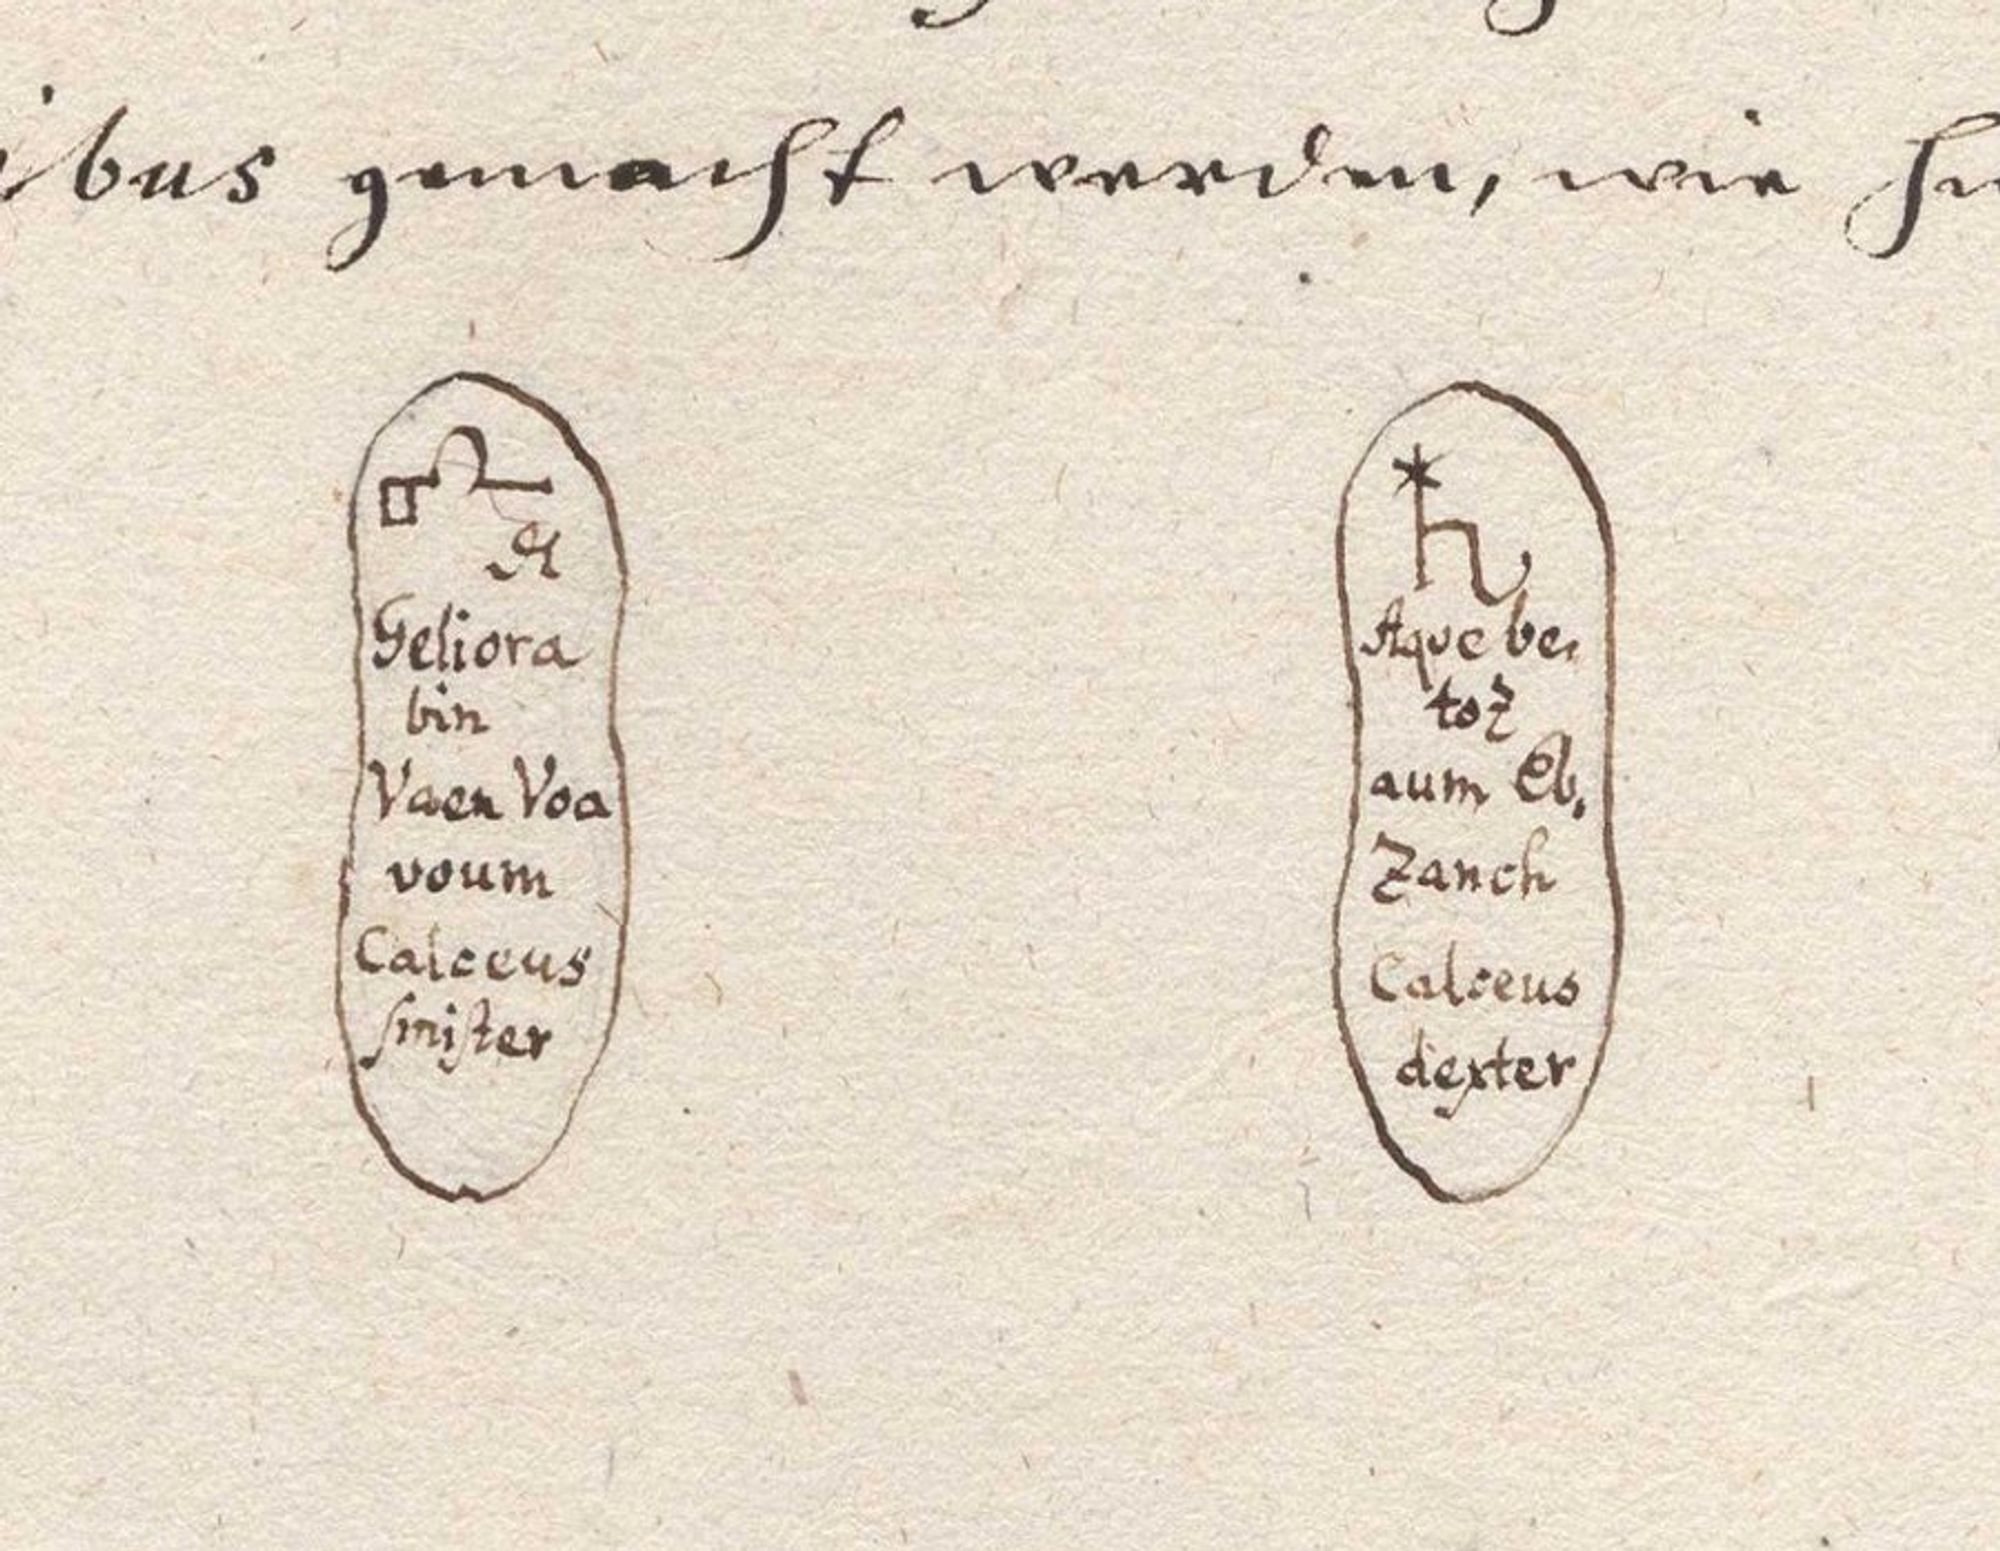 ibus gemacht werden, wie
A
Geliora
bin
Vaen Voa
voum
Calceus
sinister
Aque be,
toz
aum Eb,
Zanch
Calceus
dexter